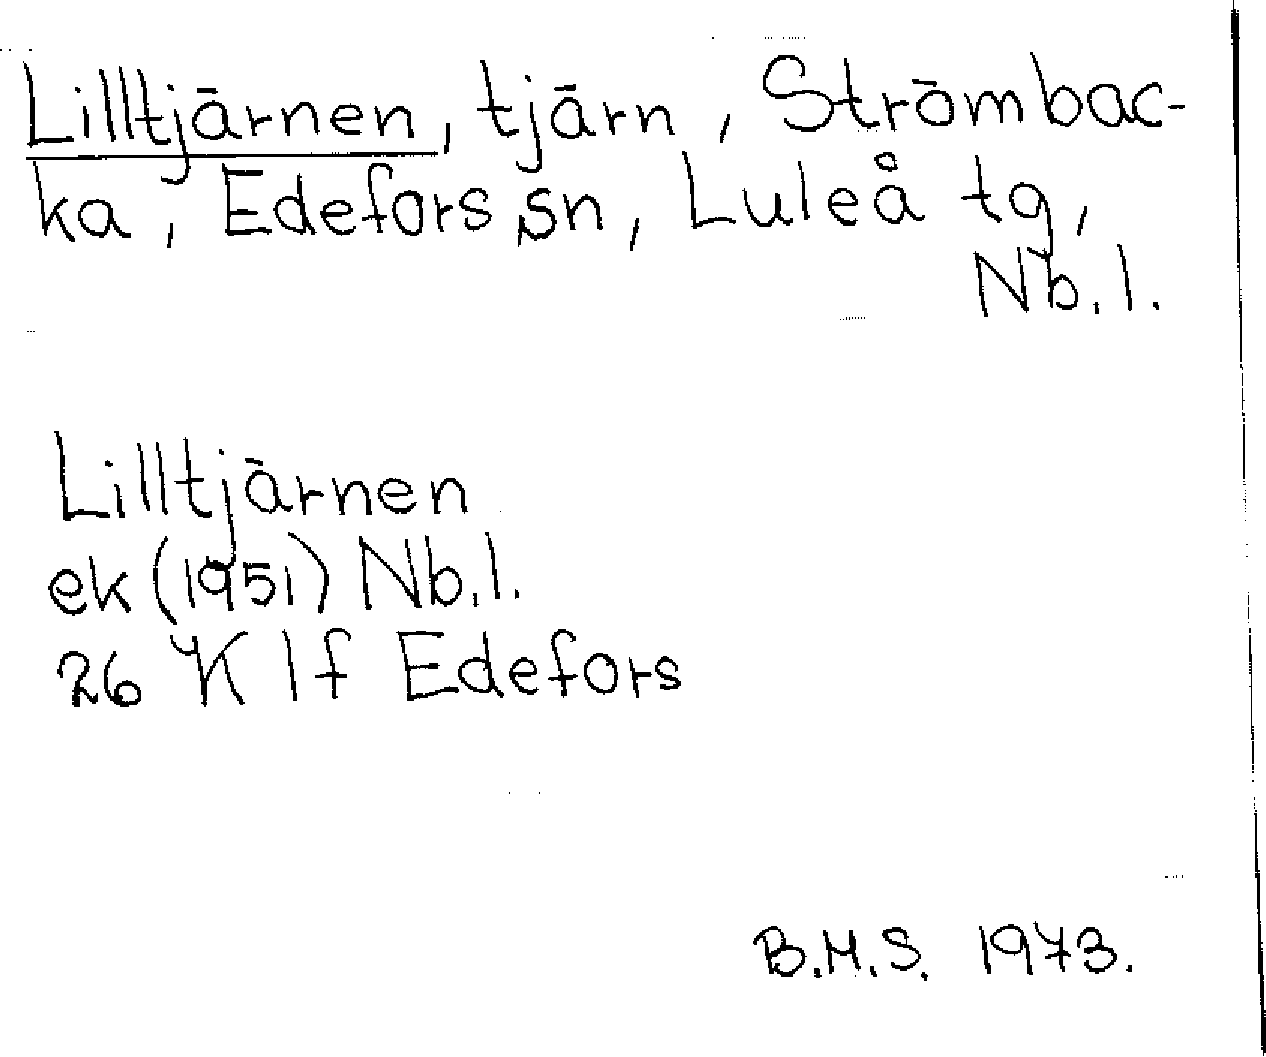 Lilltjärnen, tjärn, Strömbac-
ka, Edefors sn, Luleå tg,
Nb.l.
Lilltjärnen
ek (1951) Nb.l.
26 K If Edefors
B.M.S. 1973.